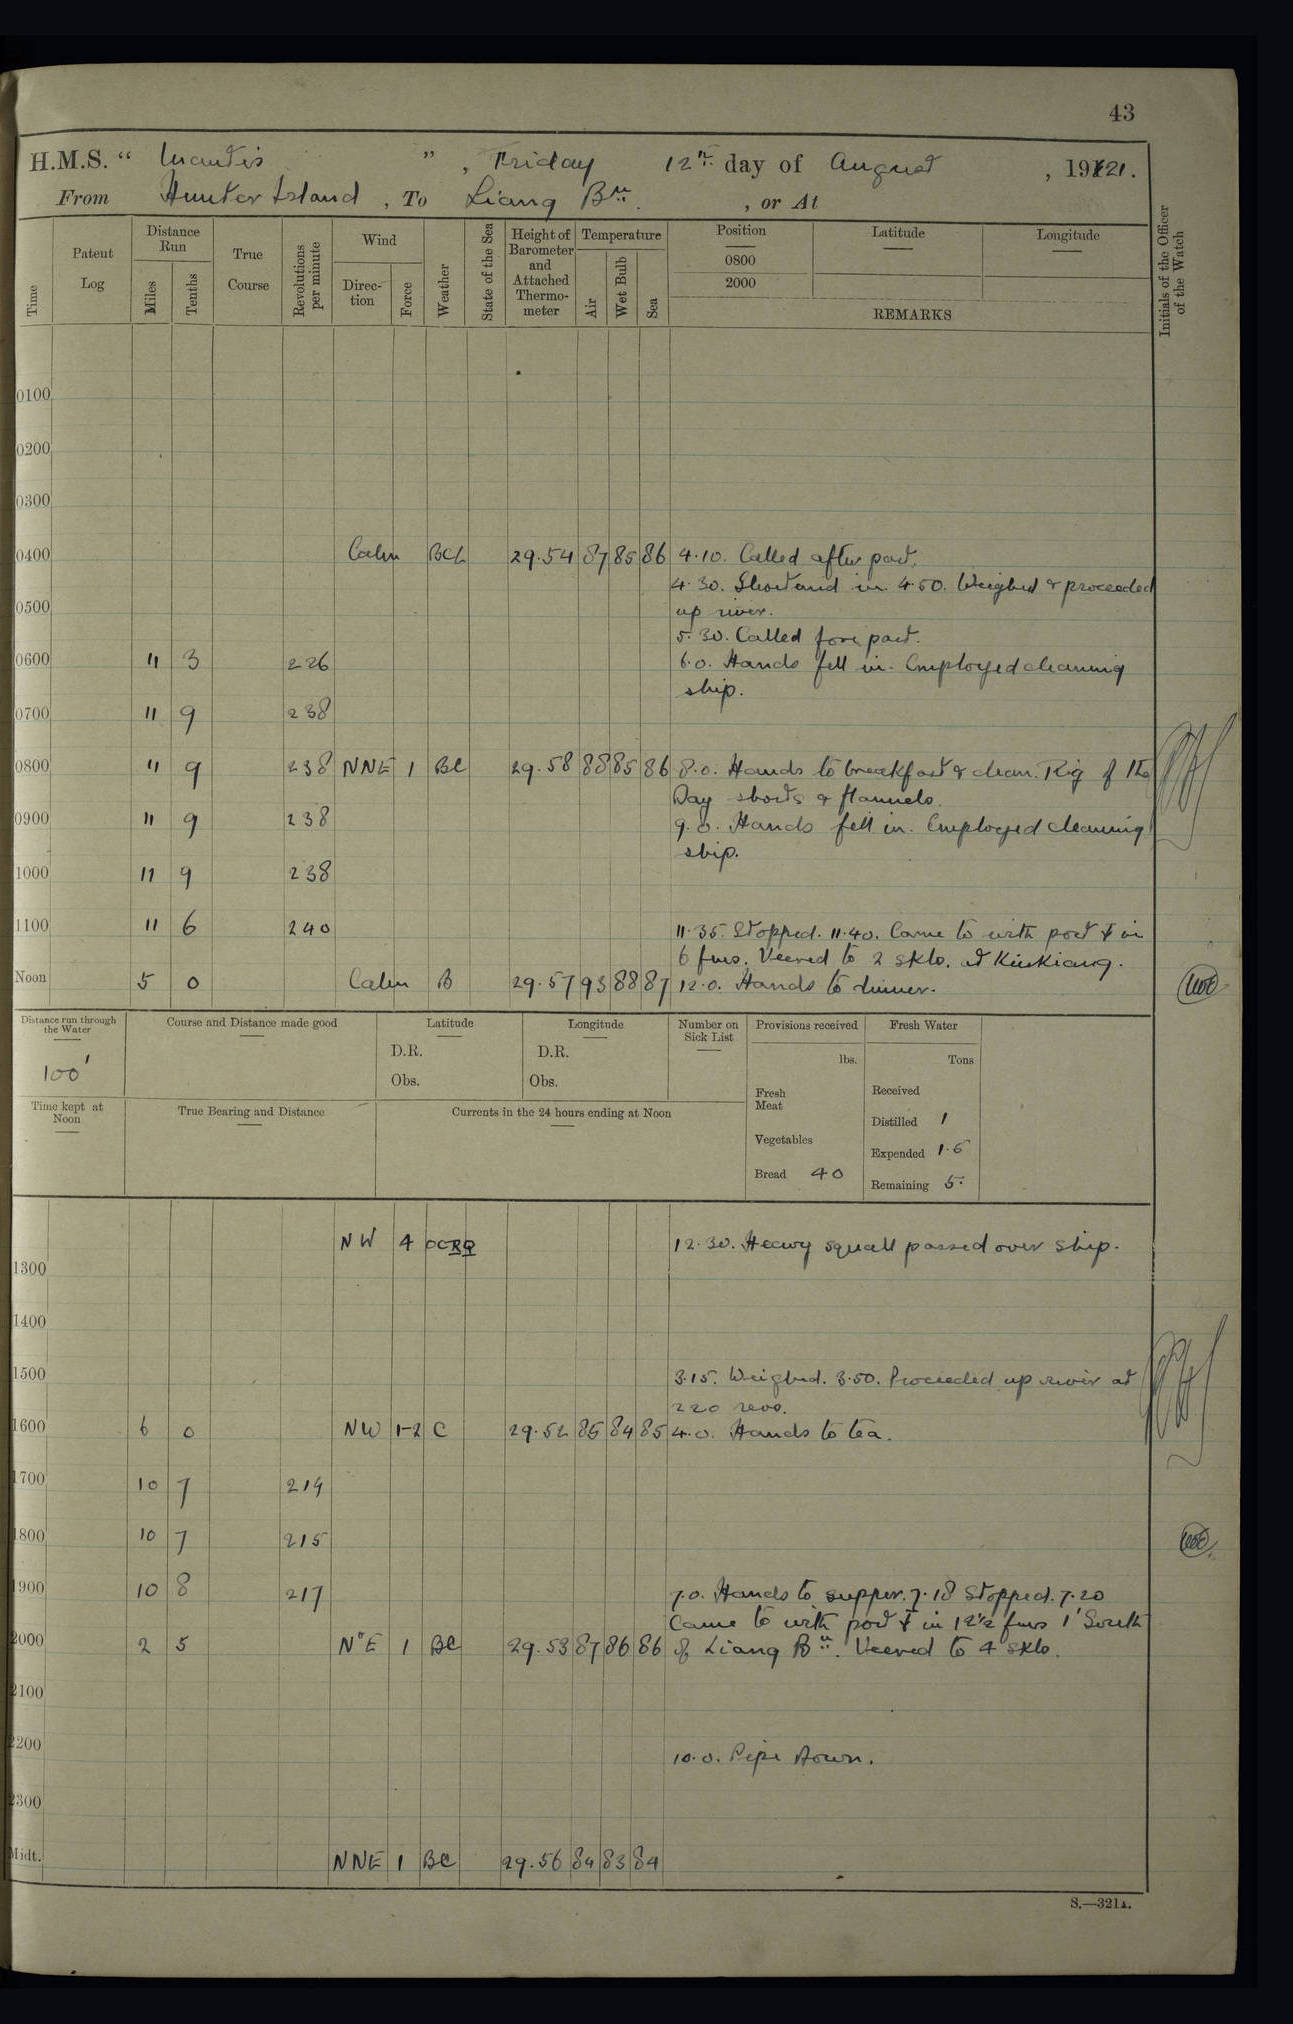 43
H.M.S. " Mantis " , Friday 12th day of August , 1921.
From Hunter Island , To Liang Bn. , or At
Time
Patent Log
Distance Run
Miles
Tenths
True Course
Revolutions per minute
Wind
Direction
Force
Weather
State of the Sea
Height of Barometer and Attached Thermometer
Temperature
Air
Wet Bulb
Sea
Position
0800
2000
Latitude
Longitude
REMARKS
Initials of the Officer of the Watch
0100
0200
0300
0400 Calm BCL 29.54 87 85 86 4.10. Called after part.
4.30. Shortened in. 4.50. Weighed & proceeded
0500 up river.
5.30. Called fore part.
0600 11 3 226 6.0. Hands fell in. Employed cleaning
ship.
0700 11 9 238
0800 11 9 238 NNE 1 BC 29.58 88 85 86 8.0. Hands to breakfast & clean. Rig of the
Day shorts & flannels.
0900 11 9 238 9.0. Hands fell in. Employed cleaning
ship.
1000 11 9 238
1100 11 6 240 11.35. Stopped. 11.40. Came to with port ⚓ in
6 fms. Veered to 2 skls. at Kiukiang.
Noon 5 0 Calm B 29.57 93 88 87 12.0. Hands to dinner.
Distance run through the Water
100'
Time kept at Noon
Course and Distance made good
True Bearing and Distance
Latitude
D.R.
Obs.
Longitude
D.R.
Obs.
Currents in the 24 hours ending at Noon
Number on Sick List
Provisions received
lbs.
Fresh Meat
Vegetables
Bread 40
Fresh Water
Tons
Received
Distilled 1
Expended 1.5
Remaining 5.
NW 4 OCRQ 12.30. Heavy squall passed over ship.
1300
1400
1500 3.15. Weighed. 3.50. Proceeded up river at
220 revs.
1600 6 0 NW 1-2 C 29.52 85 84 85 4.0. Hands to tea.
1700 10 7 214
1800 10 7 215
1900 10 8 217 7.0. Hands to supper. 7.18 Stopped. 7.20
Came to with port ⚓ in 12½ fms 1' South
2000 2 5 N"E 1 BC 29.53 87 86 86 of Liang Bn. Veered to 4 skls.
2100
2200 10.0. Pipe Down.
2300
Midt. NNE 1 BC 29.56 84 83 84
S.—321A.